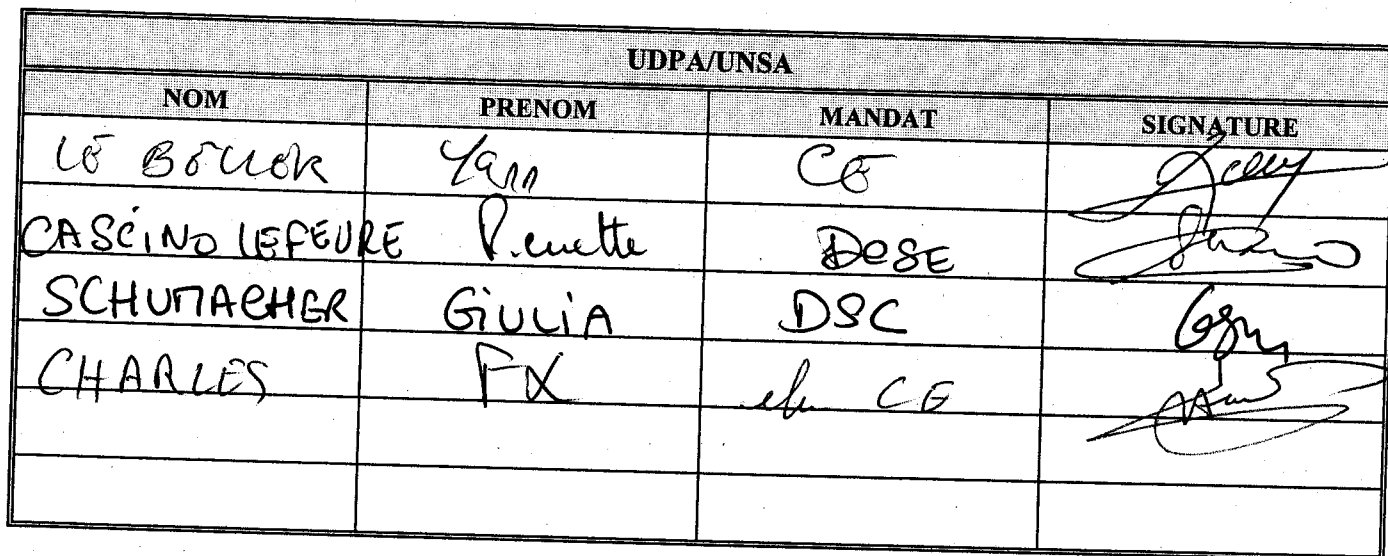 UDPA/UNSA
NOM PRENOM MANDAT SIGNATURE
LE Yann CE
CASCINO LEFEVRE DCSE
SCHUMACHER GIULIA DSC
CHARLES FX elu CE